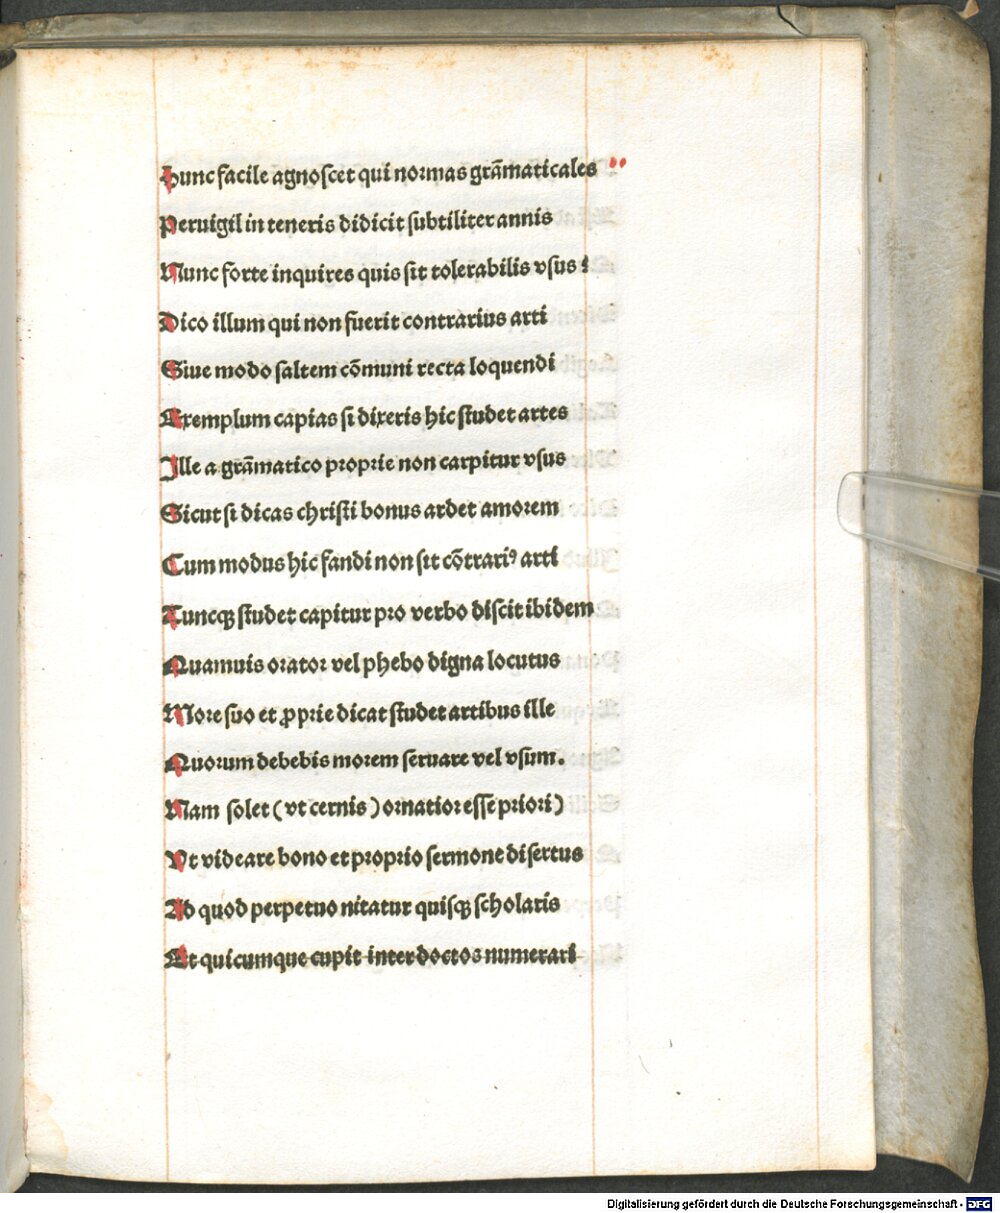 Hunc facile agnoscet qui normas grāmaticales
Peruigil in teneris didicit subtiliter annis
Nunc forte inquires quis sit tolerabilis vsus?
Dico illum qui non fuerit contrarius arti
Siue modo saltem cōmuni recta loquendi
Exemplum capias si dixeris hic studet artes
Ille a grāmatico proprie non carpitur vsus
Sicut si dicas christi bonus ardet amorem
Cum modus hic fandi non sit cōtrariꝰ arti
Tuncqꝫ studet capitur pro verbo discit ibidem
Quamuis orator vel phebo digna locutus
More suo et ꝓprie dicat studet artibus ille
Quorum debebis morem seruare vel vsum.
Nam solet (vt cernis) ornatior esse priori)
Vt videare bono et proprio sermone disertus
Ad quod perpetuo nitatur quisqꝫ scholaris
Et quicumque cupit inter doctos numerari
Digitalisierung gefördert durch die Deutsche Forschungsgemeinschaft - DFG